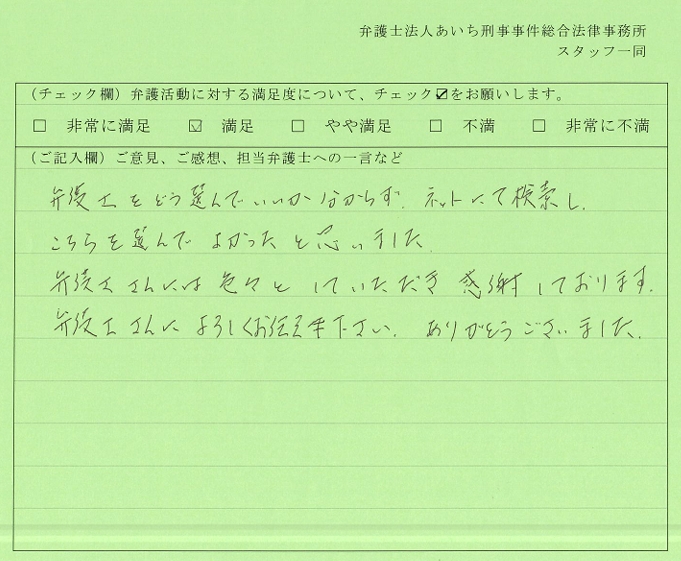 弁護士法人あいち刑事事件総合法律事務所
スタッフ一同
(チェック欄) 弁護活動に対する満足度について、チェック☑をお願いします。
□ 非常に満足 ☑ 満足 □ やや満足 □ 不満 □ 非常に不満
(ご記入欄) ご意見、ご感想、担当弁護士への一言など
弁護士をどう選んでいいか分からず、ネットにて検索し、
こちらを選んでよかったと思いました。
弁護士さんには色々としていただき感謝しております。
弁護士さんによろしくお伝え下さい。ありがとうございました。